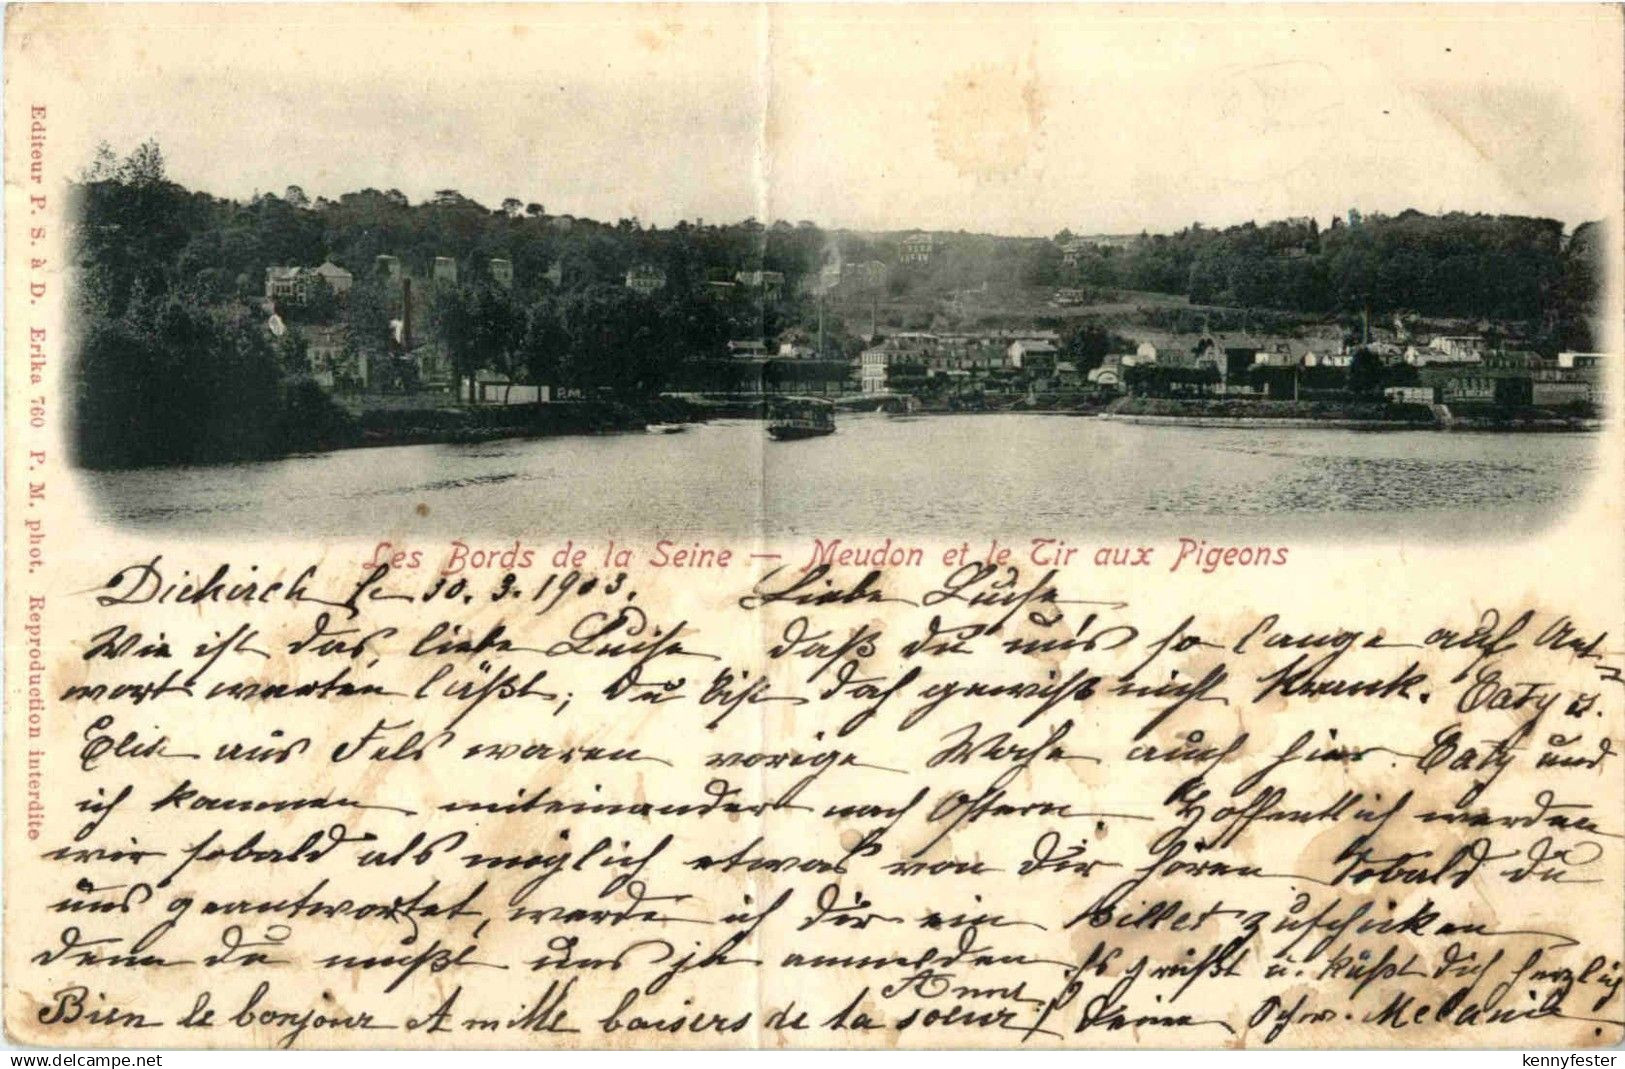 Editeur P. S. à D. Erika 760 P. M. phot. Reproduction interdite
P.M.
Les Bords de la Seine — Meudon et le Tir aux Pigeons
Diekirch le 30. 3. 1903. Liebe Luise
Wie ist das, liebe Luise daß du uns so lange auf Ant-
wort warten läßt; Du bist doch gewiß nicht krank. Caty u.
Elise aus Fels waren vorige Woche auch hier. Caty und
ich kommen miteinander nach Ostern. Hoffentlich werden
wir sobald als möglich etwas von Dir hören Sobald du
uns geantwortet, werde ich Dir ein Billet zuschicken
denn du mußt uns ja anmelden Es grüßt u. küßt Dich herzlich
Bien le bonjour et mille baisers de ta soeur Anna Deine Schw. Melanie.
kennyfester